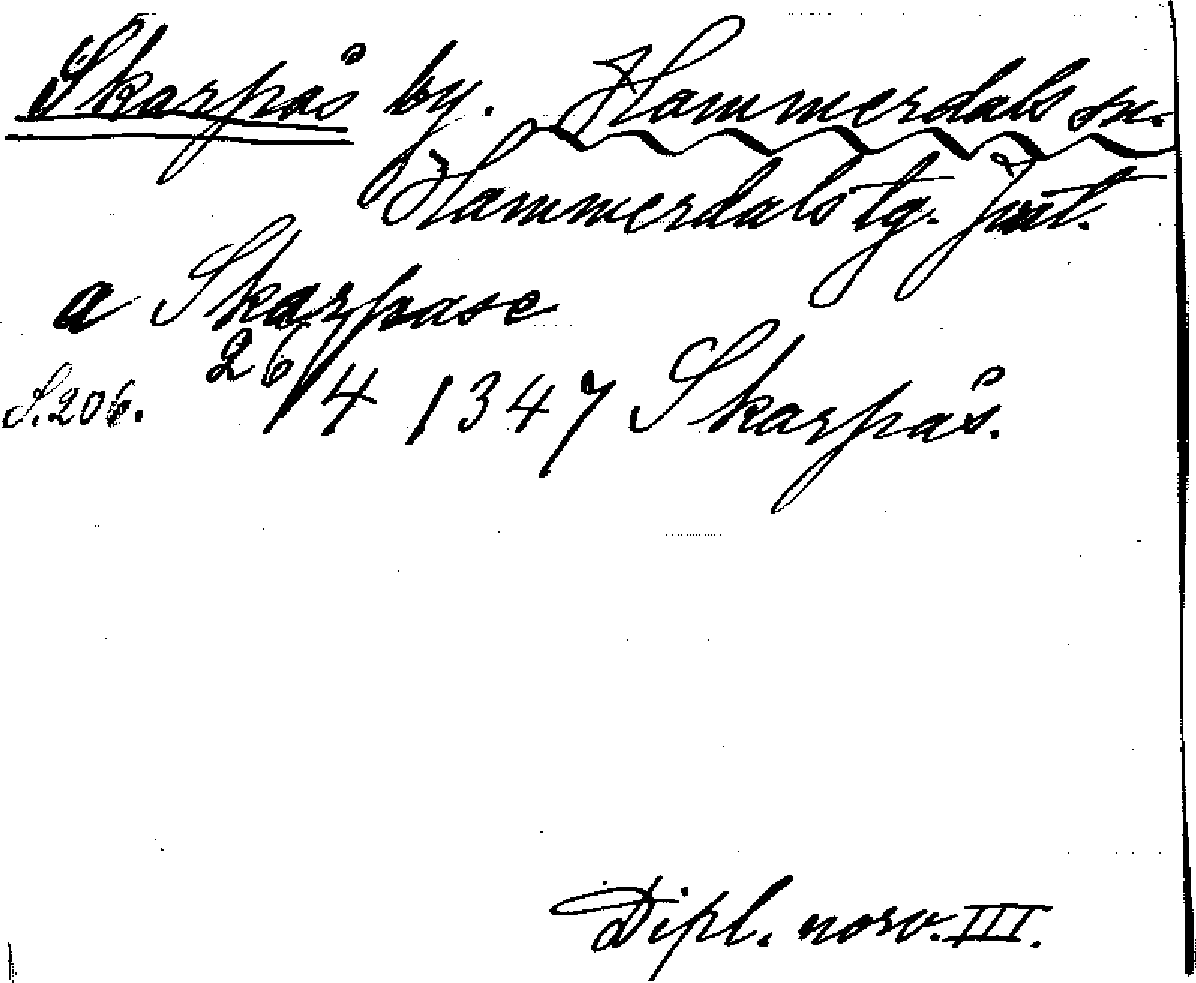 Skarpås by. Hammerdals sn.
Hammerdals tg. Jmt.
a Skarpase
S. 206. 26/4 1347 Skarpås.
Dipl. norv. III.